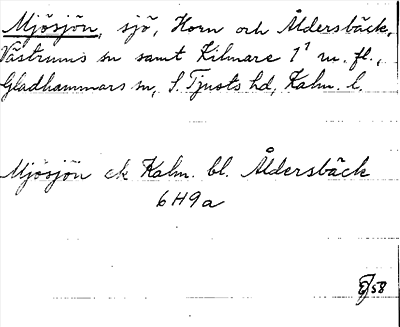 Mjösjön, sjö, Horn och Åldersbäck,
Västrums sn samt Kilmare 1¹ m. fl.,
Gladhammars sn, S. Tjusts hd, Kalm. l.
Mjösjön ek Kalm. bl. Åldersbäck
6H9a
58